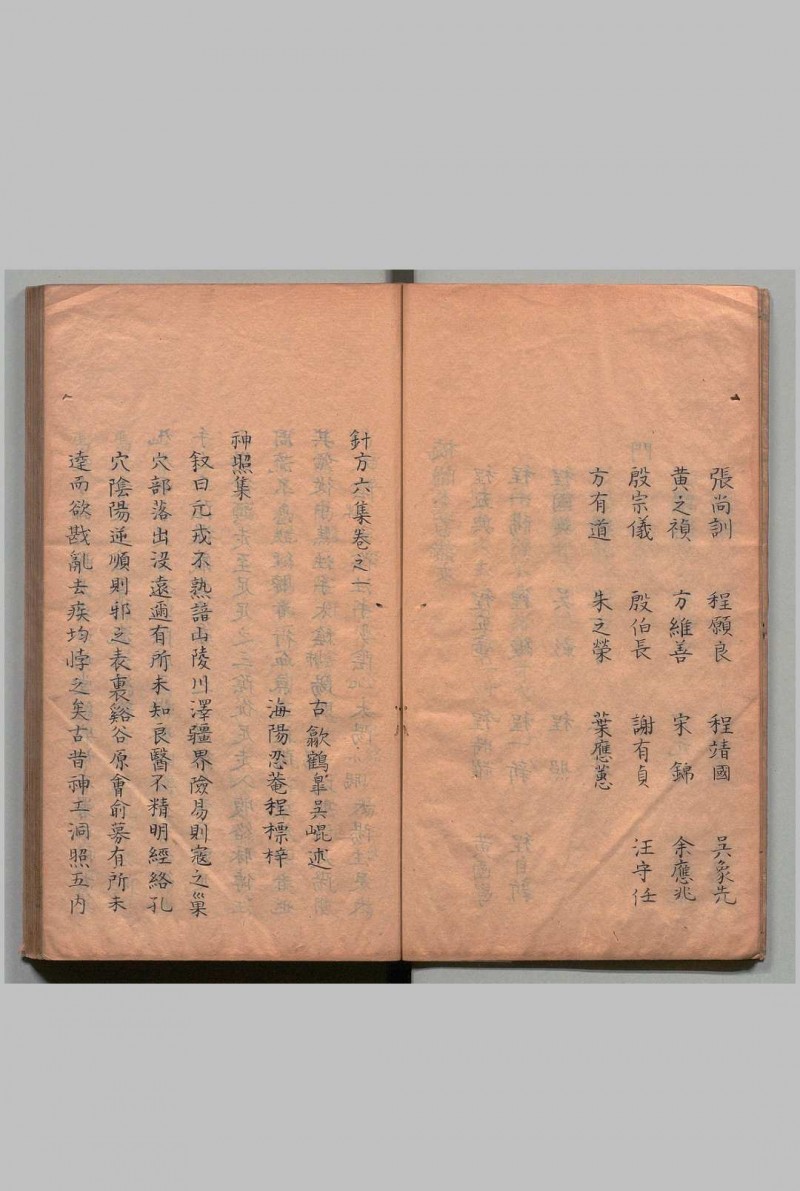 張尚訓 程願良 程靖國 吳象先
黃之禎 方維善 宋錦 余應兆
殷宗儀 殷伯長 謝有貞 汪守任
方有道 朱之榮 葉應蕙
針方六集卷之一
古歙鶴皐吳崐述
海陽忍菴程標梓
神照集
叙曰元戎不熟諳山陵川澤疆界險易則寇之巢
穴部落出沒遠邇有所未知良醫不精明經絡孔
穴陰陽逆順則邪之表裏谿谷原會俞募有所未
達而欲戡亂去疾均悖之矣古昔神工洞照五內